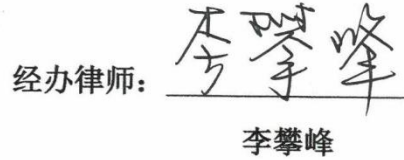 经办律师：李攀峰
李攀峰